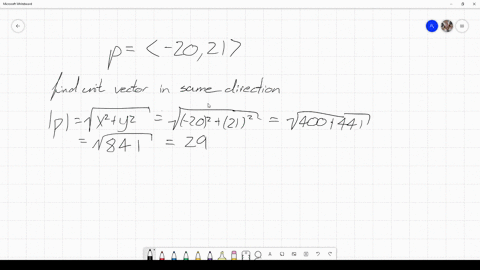 Microsoft Whiteboard
p = < -20, 21 >
find unit vector in same direction
|p| = √x²+y² = √(-20)²+(21)² = √400+441
= √841 = 29